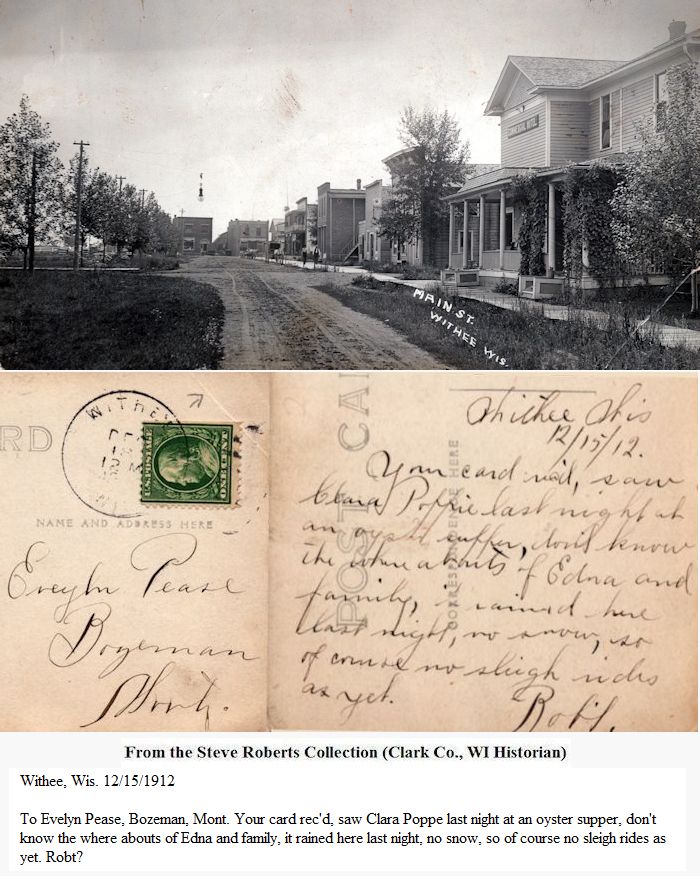 MAIN ST.
WITHEE WIS.
RD
WITHEE
DEC
U.S. POSTAGE
ONE CENT
NAME AND ADDRESS HERE
Evelyn Pease
Bozeman
Mont.
POST CA
CORRESPONDENCE HERE
Withee Wis
12/15/12.
Your card rec'd, saw
Clara Poppie last night at
an oyster supper, don't know
the where abouts of Edna and
family, it rained here
last night, no snow, so
of course no sleigh rides
as yet.
Rob't.
From the Steve Roberts Collection (Clark Co., WI Historian)
Withee, Wis. 12/15/1912
To Evelyn Pease, Bozeman, Mont. Your card rec'd, saw Clara Poppe last night at an oyster supper, don't
know the where abouts of Edna and family, it rained here last night, no snow, so of course no sleigh rides as
yet. Robt?